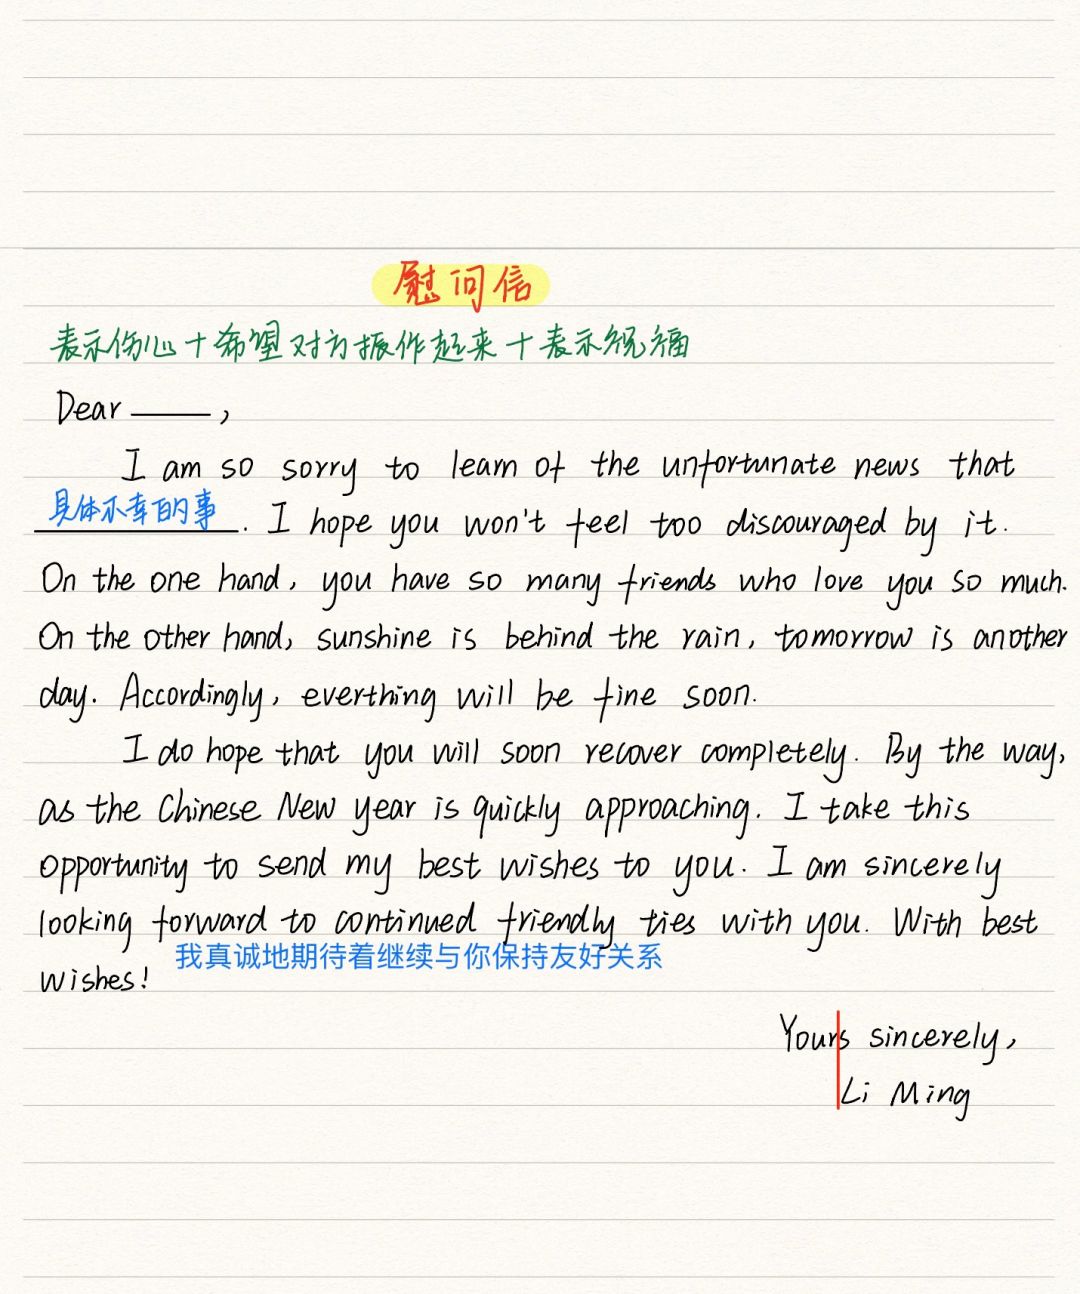 慰问信
表示伤心+希望对方振作起来+表示祝福
Dear ____,
I am so sorry to learn of the unfortunate news that
具体不幸的事. I hope you won't feel too discouraged by it.
On the one hand, you have so many friends who love you so much.
On the other hand, sunshine is behind the rain, tomorrow is another
day. Accordingly, everthing will be fine soon.
I do hope that you will soon recover completely. By the way,
as the Chinese New year is quickly approaching. I take this
opportunity to send my best wishes to you. I am sincerely
looking forward to continued friendly ties with you. With best
我真诚地期待着继续与你保持友好关系
wishes!
Yours sincerely,
Li Ming